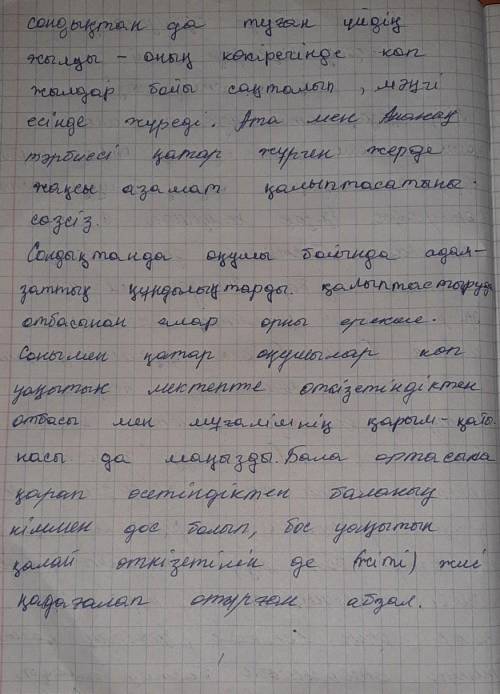 сондықтан да туған үйдің
жылуы - оның көкірегінде көп
жылдар бойы сақталып, мәңгі
есінде жүреді. Ата мен Ананың
тәрбиесі қатар жүрген жерде
жақсы азамат қалыптасатыны
сөзсіз.
Сондықтанда оқушы бойында адам-
заттық құндылықтарды қалыптастыруда
отбасынан алар орны ерекше.
Сонымен қатар оқушылар көп
уақытын мектепте өткізетіндіктен
отбасы мен мұғалімнің қарым-қаты
насы да маңызды. Бала ортасына
қарап өсетіндіктен баланың
кіммен дос болып, бос уақытын
қалай өткізетінін де (жіті) жиі
қадағалап отырған абзал.